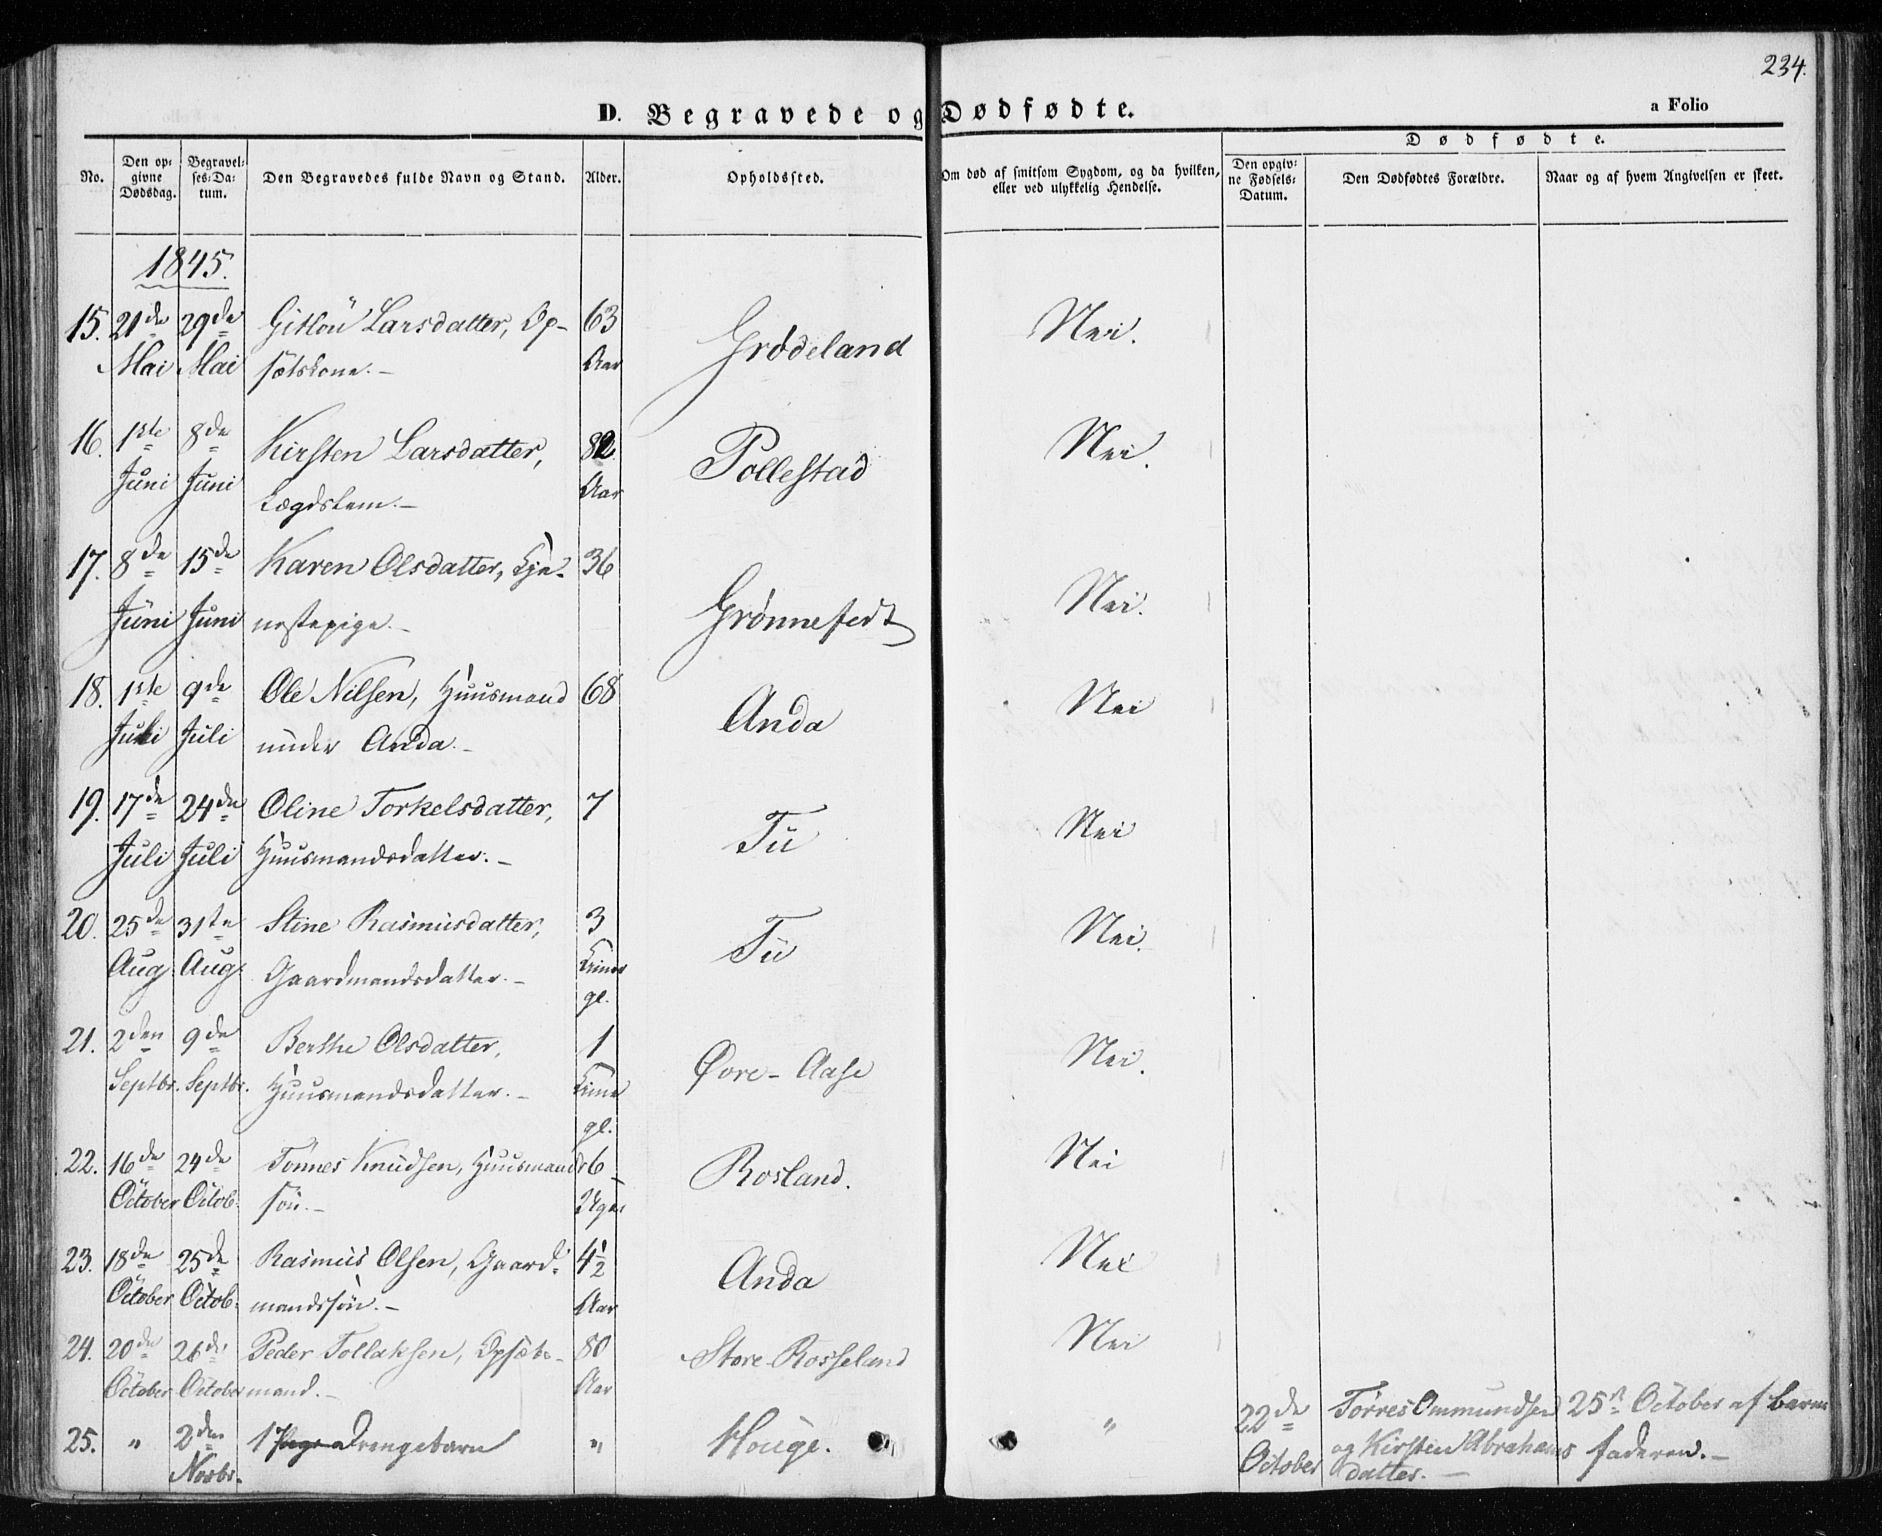 234.
D. Begravede og Dødfødte.
a Folio
No.
Den op-
givne
Dødsdag.
Begravel-
ses-Da-
tum.
Den Begravedes fulde Navn og Stand.
Alder.
Opholdssted.
Om død af smitsom Sygdom, og da hvilken,
eller ved ulykkelig Hendelse.
Dødfødte.
Den opgiv-
ne Fødsels-
Datum.
Den Dødfødtes Forældre.
Naar og af hvem Angivelsen er skeet.
1845.
15. 21de 29de Gitlou Larsdatter, Op- 63 Grødeland Nei.
Mai Mai sætskone.- Aar
16. 1ste 8de Kirsten Larsdatter, 82 Pollestad Nei.
Juni Juni Lægdslem.- Aar
17. 8de 15de Karen Olsdatter, Tje- 36 Grønnefedt Nei.
Juni Juni nestepige.-
18. 1ste 9de Ole Nilsen, Huusmand 68 Anda Nei
Juli Juli under Anda.-
19. 17de 24de Oline Torkelsdatter, 7 Tu Nei
Juli Juli Huusmandsdatter.-
20. 25de 31te Stine Rasmusdatter, 3 Tu Nei.
Aug. Aug. Gaardmandsdatter.-
gl.
21. 2den 9de Berthe Olsdatter, 1 Øvre-Aase Nei.
Septbr. Septbr. Huusmandsdatter.-
gl.
22. 16de 24de Tönnes Knudsen, Huusmands 6 Rosland. Nei
October Octob. søn.-
23. 18de 25de Rasmus Olsen, Gaard- 4½ Anda Nei
October Octob. mandssøn.- Aar
24. 20de 26de Peder Tollaksen, Opsæts- 80 Store-Rosseland Nei
October October mand.- Aar
25. " 2den 1 Drengebarn " Houge. " 22de Tørres Ommundsen 25de October af barne
Novbr. October og Kirsten Abrahams faderen.-
datter.-